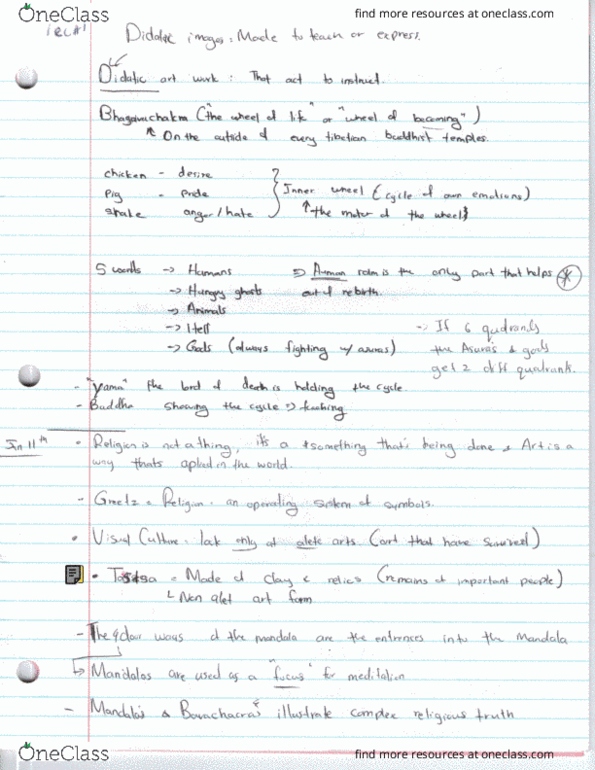 OneClass
find more resources at oneclass.com
Didatic images: Made to teach or express.
Didatic art work: That act to instruct.
Bhagavachakra ("the wheel of life" or "wheel of becoming")
On the outside of every tibetian buddhist temples.
chicken - desire
Pig - pride
snake anger/hate
Inner wheel (cycle of own emotions)
the motor of the wheel
5 worlds -> Humans
-> Hungry ghosts
-> Animals
-> Hell
-> Gods (always fighting w/ asuras)
=> Human realm is the only part that helps
out of rebirth.
-> If 6 quadrants
the Asura's & gods
get 2 diff quadrants.
- "Yama" the lord of death is holding the cycle.
- Buddha showing the cycle => teaching
Jan 11th
• Religion is not a thing, it's a something that's being done & Art is a
way thats aplied in the world.
- Greetz = Religion: an operating system of symbols.
• Visual Culture: look only at elete arts. (art that have survived)
• = Made of clay & relics (remains of important people)
Non elet art form
- The 4 door ways of the mandala are the entrences into the Mandala
Mandalas are used as a "focus" for meditation
- Mandala's & Bavachacra's illustrate complex religious truth
OneClass
find more resources at oneclass.com